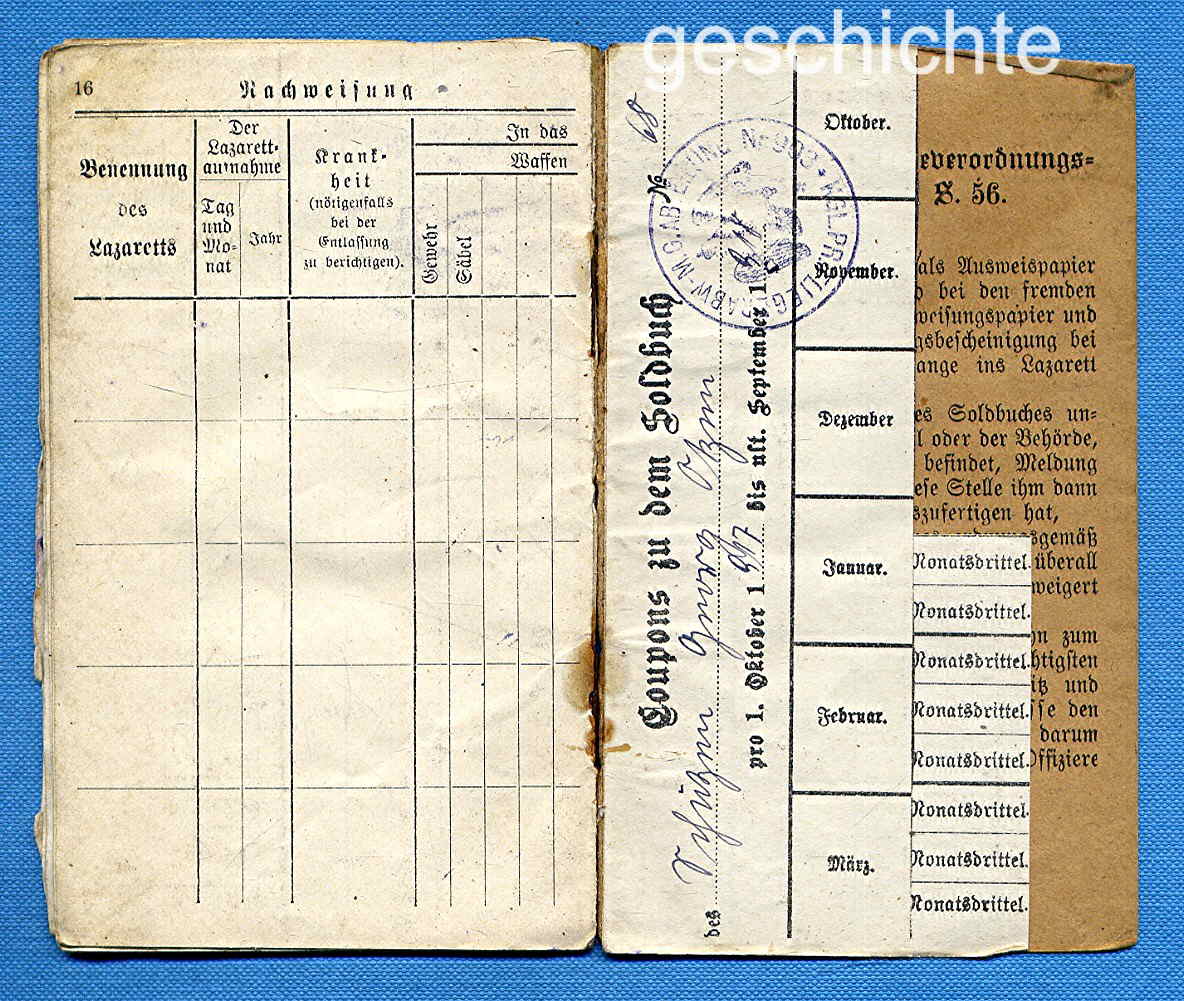 geschichte
16
Nachweisung
Benennung
des
Lazaretts
Der
Lazarett-
aufnahme
Tag
und
Mo-
nat
Jahr
Krank-
heit
(nötigenfalls
bei der
Entlassung
zu berichtigen).
In das
Waffen
Gewehr
Säbel
Coupons zu dem Soldbuch № 68
des Schützen
pro 1. Oktober 1917 bis ult. September 1
903 · KGL. PR.
Oktober.
November.
Dezember
Januar.
Februar.
März.
Monatsdrittel.
Monatsdrittel.
Monatsdrittel.
Monatsdrittel.
Monatsdrittel.
Monatsdrittel.
Monatsdrittel.
Monatsdrittel.
everordnungs-
S. 56.
als Ausweispapier
bei den fremden
weisungspapier und
gsbescheinigung bei
ange ins Lazarett
es Soldbuches un-
l oder der Behörde,
befindet, Meldung
ese Stelle ihm dann
szufertigen hat,
sgemäß
überall
weigert
n zum
htigsten
itz und
sse den
darum
Offiziere